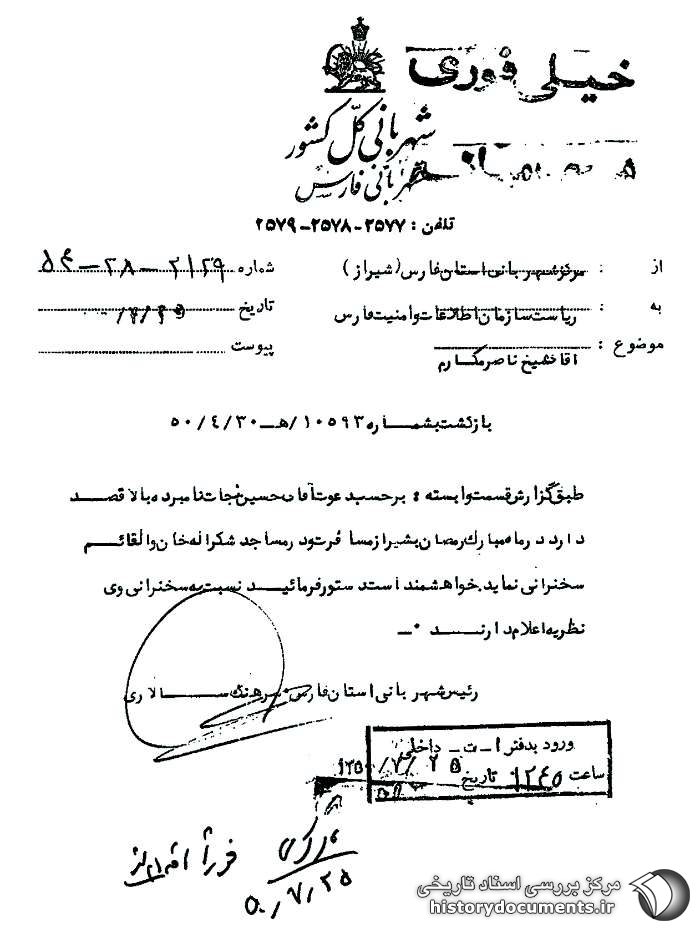 خیلی فوری
شهربانی کل کشور
شهربانی فارس
تلفن : ۲۵۷۷-۲۵۷۸-۲۵۷۹
از : مرکز شهربانی استان فارس (شیراز)
شماره ۲۱۲۹-۲۸-۵۴
به : ریاست سازمان اطلاعات و امنیت فارس
تاریخ
موضوع : آقا شیخ ناصر مکارم
پیوست
بازگشت بشماره ۱۰۵۹۳/هـ-۵۰/۴/۳۰
طبق گزارش قسمت وابسته : بر حسب دعوت آقای حسین نجات نامبرده بالا قصد
دارد در ماه مبارک رمضان بشیراز مسافرت و در مساجد شکراله خان و القائم
سخنرانی نماید. خواهشمند است دستور فرمائید نسبت به سخنرانی وی
نظریه اعلام دارند ۰-
رئیس شهربانی استان فارس. سرهنگ سالاری
ورود بدفتر ا-ت-داخلی
۱۳۵۰/۷/۲۵
ساعت ۱۲۴۵ تاریخ
۵۰/۷/۲۵
مرکز بررسی اسناد تاریخی
historydocuments.ir